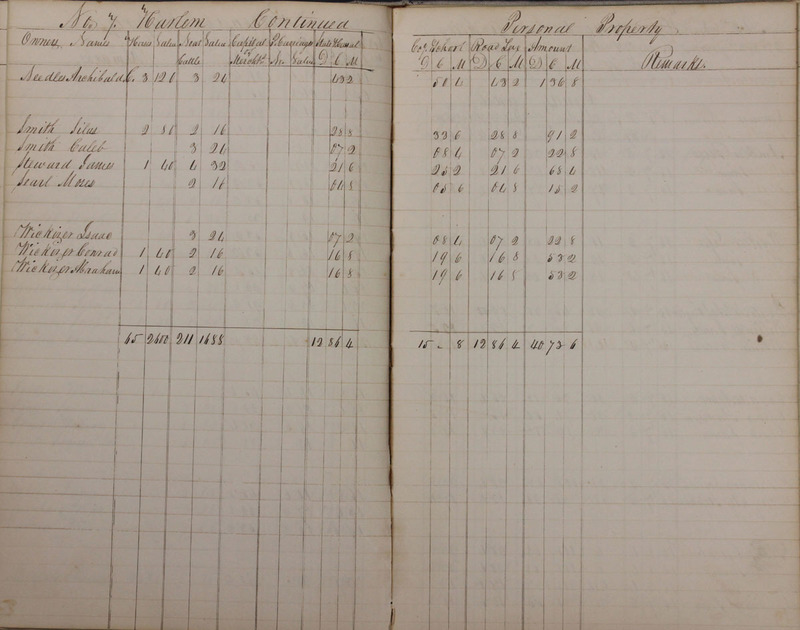 No. 7. Harlem Continued Personal Property
Owners Names Horses Value Neat Cattle Value Capital Mercht. P. Carriages No. Value State & Canal D C M Co. & School D C M Road Tax D C M Amount D C M Remarks.
Needles Archibald C. 3 120 3 24 43 2 50 4 43 2 1 36 8
Smith Silas 2 80 2 16 28 8 33 6 28 8 91 2
Smith Caleb 3 24 07 2 08 4 07 2 22 8
Steward James 1 40 4 32 21 6 25 2 21 6 68 4
Searl Moses 2 16 04 8 05 6 04 8 15 2
Wickizer Isaac 3 24 07 2 08 4 07 2 22 8
Wickizer Conrad 1 40 2 16 16 8 19 6 16 8 53 2
Wickizer Abraham 1 40 2 16 16 8 19 6 16 8 53 2
65 2600 211 1688 12 86 4 15 - 8 12 86 4 40 73 6